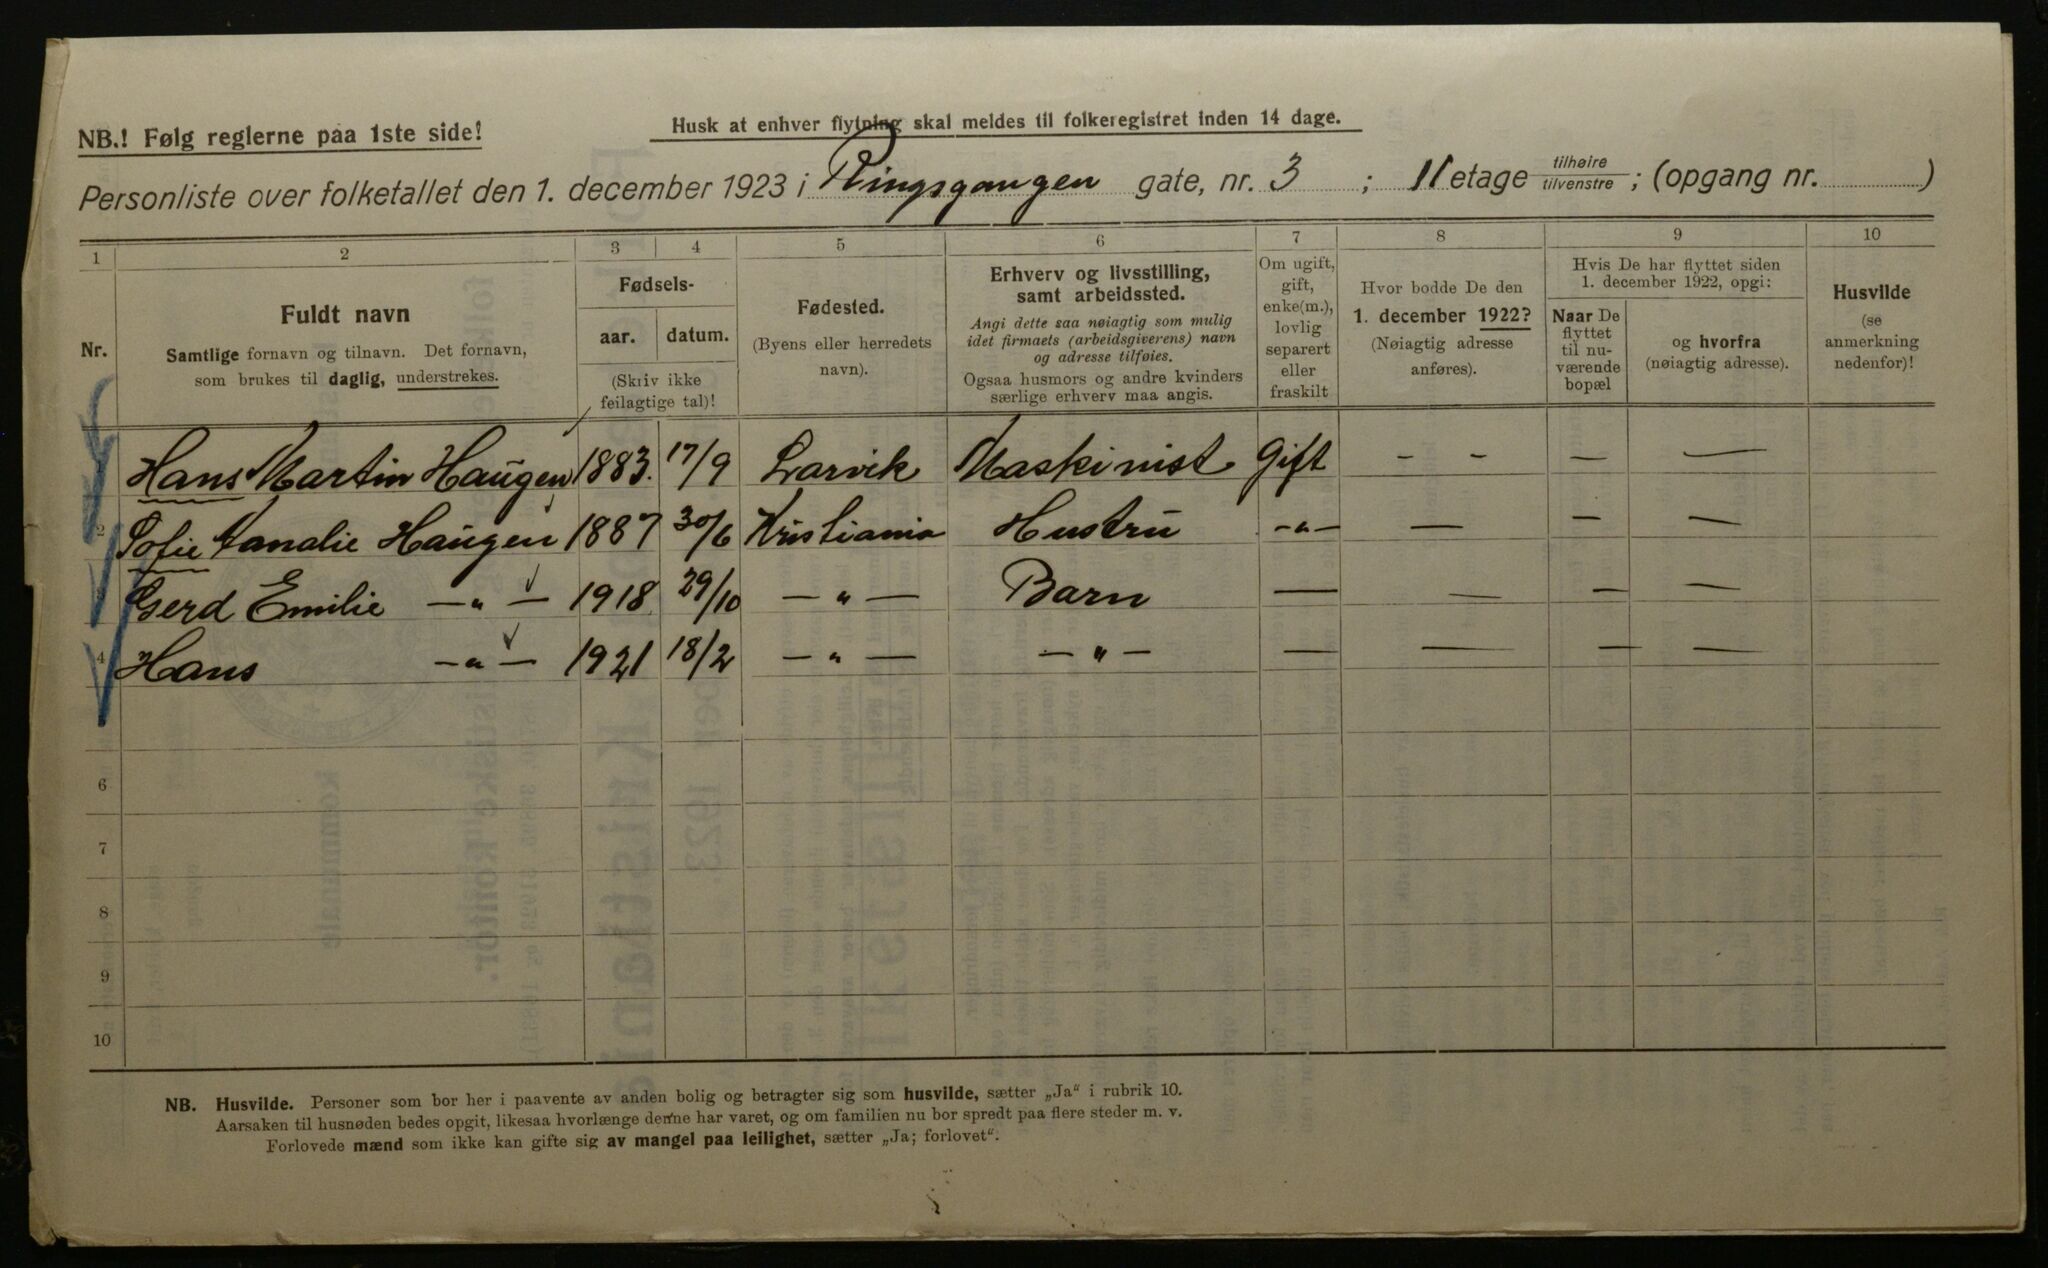 NB.! Følg reglerne paa 1ste side!
Husk at enhver flytning skal meldes til folkeregistret inden 14 dage.
Personliste over folketallet den 1. december 1923 i Ringsgangen gate, nr. 3 ; II etage tilhøire tilvenstre ; (opgang nr. )
1 2 3 4 5 6 7 8 9 10
Nr.
Fuldt navn
Samtlige fornavn og tilnavn. Det fornavn,
som brukes til daglig, understrekes.
Fødsels-
aar. datum.
(Skriv ikke
feilagtige tal)!
Fødested.
(Byens eller herredets
navn).
Erhverv og livsstilling,
samt arbeidssted.
Angi dette saa nøiagtig som mulig
idet firmaets (arbeidsgiverens) navn
og adresse tilføies.
Ogsaa husmors og andre kvinders
særlige erhverv maa angis.
Om ugift,
gift,
enke(m.),
lovlig
separert
eller
fraskilt
Hvor bodde De den
1. december 1922?
(Nøiagtig adresse
anføres).
Hvis De har flyttet siden
1. december 1922, opgi:
Naar De
flyttet
til nu-
værende
bopæl
og hvorfra
(nøiagtig adresse).
Husvilde
(se
anmerkning
nedenfor)!
Hans Martin Haugen 1883. 17/9 Larvik Maskinist Gift - - — —
2 Sofie Haugen 1887 30/6 Kristiania Hustru -„- — — —
3 Gerd Emilie —„— 1918 29/10 —„— Barn — — — —
4 Hans —„— 1921 18/2 —„— —„— — — — —
6
7
8
9
10
NB. Husvilde. Personer som bor her i paavente av anden bolig og betragter sig som husvilde, sætter „Ja“ i rubrik 10.
Aarsaken til husnøden bedes opgit, likesaa hvorlænge denne har varet, og om familien nu bor spredt paa flere steder m. v.
Forlovede mænd som ikke kan gifte sig av mangel paa leilighet, sætter „Ja; forlovet“.